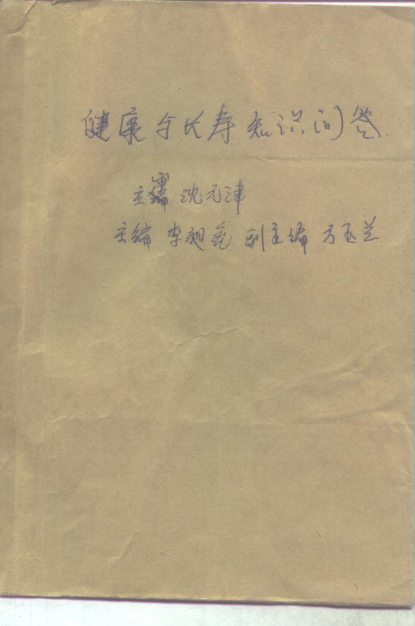 健康与长寿知识问答
主编 沈元津
主编 李 副主编 方玉兰